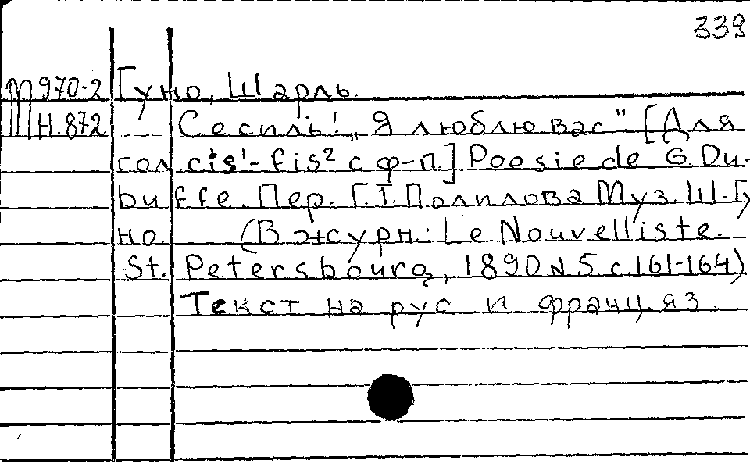 339
М970-2 Гуно, Шарль.
Н.872 Сесиль! „Я люблю вас" [Для
гол. cis¹-fis² с ф-п.] Poesie de G. Du-
buffe. Пер. Г. Т. Полилова Муз. Ш. Гу
но. (В журн.: Le Nouvelliste.
St. Petersbourg, 1890 № 5 с. 161-164)
Текст на рус и франц. яз.